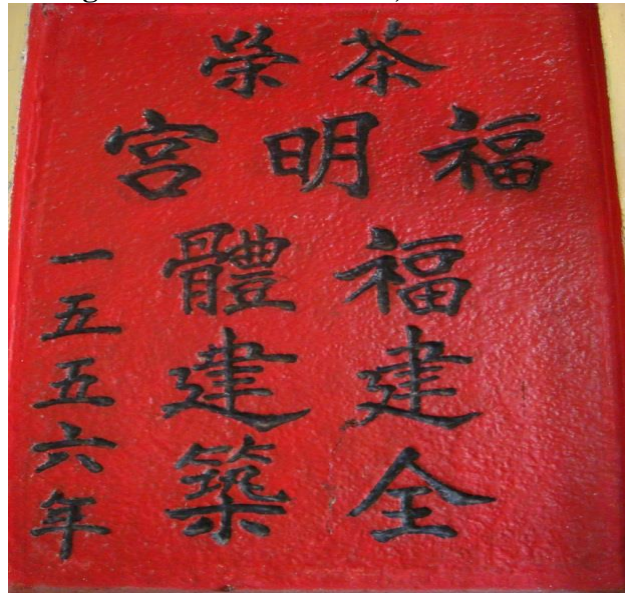 茶榮
福明宮
福建全
體建築
一五五六年